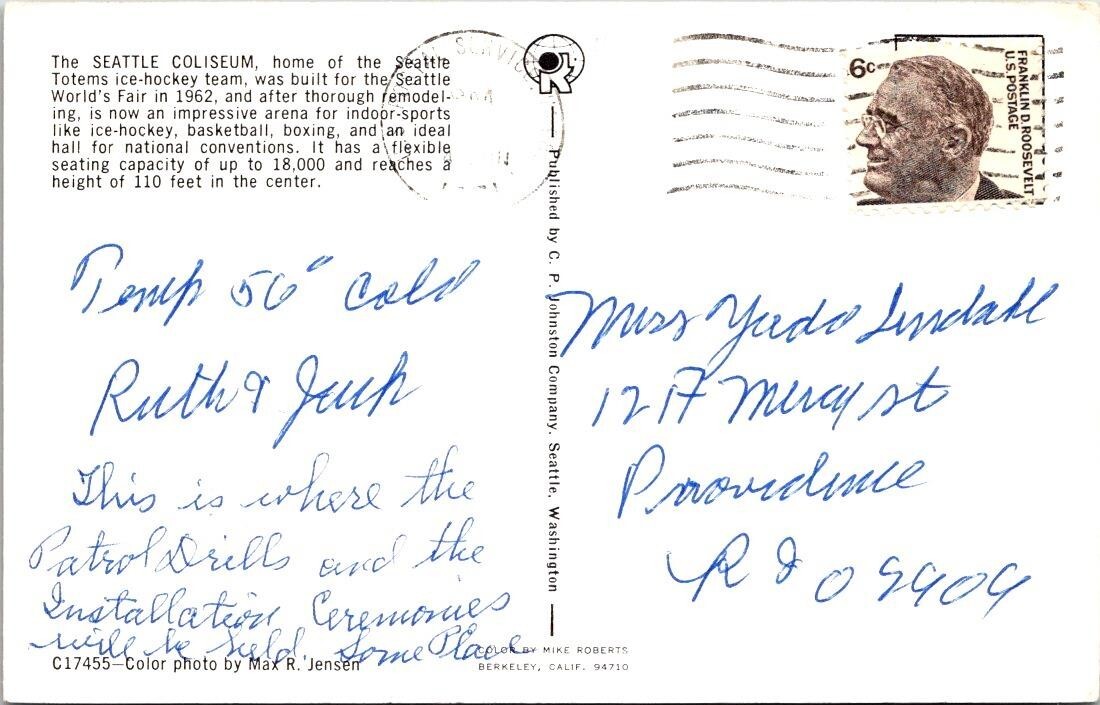 The SEATTLE COLISEUM, home of the Seattle
Totems ice-hockey team, was built for the Seattle
World's Fair in 1962, and after thorough remodel-
ing, is now an impressive arena for indoor-sports
like ice-hockey, basketball, boxing, and an ideal
hall for national conventions. It has a flexible
seating capacity of up to 18,000 and reaches a
height of 110 feet in the center.
Temp 56° Cold
Ruth &
This is where the
Patrol Drills and the
Installation Ceremonies
will be held. Some Place
C17455—Color photo by Max R. Jensen
Published by C. P. Johnston Company, Seattle, Washington
COLOR BY MIKE ROBERTS
BERKELEY, CALIF. 94710
SERVICE
6c
FRANKLIN D. ROOSEVELT
U.S. POSTAGE
Miss
1217 st
Providence
R I 09909